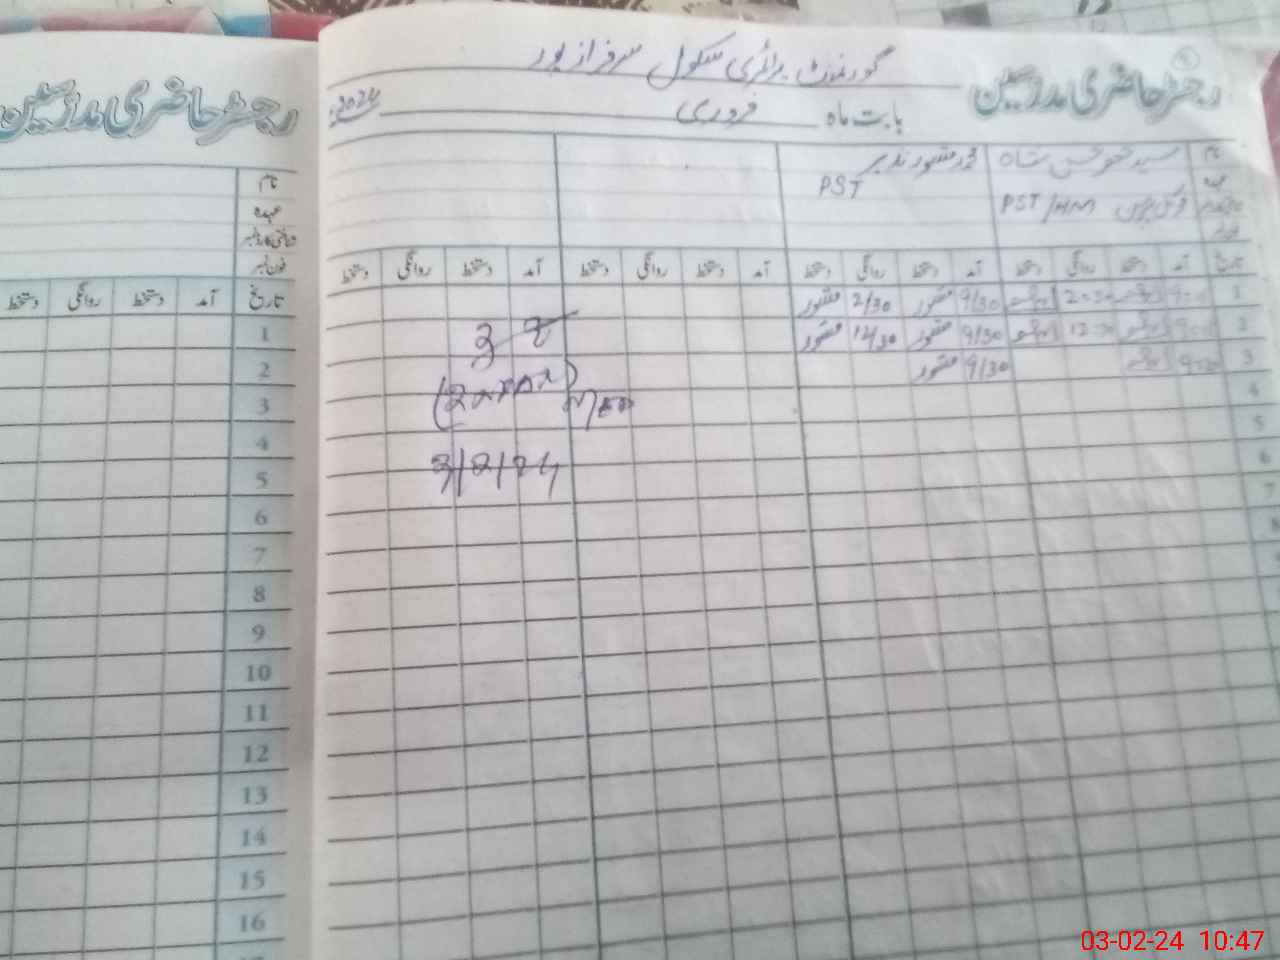 رجسٹر حاضری مدرسین
گورنمنٹ پرائمری سکول سرفراز پور
رجسٹر حاضری مدرسین
بابت ماہ فروری 2024ء
نام
عہدہ
شناختی کارڈ نمبر
فون نمبر
نام سید شاہ محمد منظور نذیر
عہدہ PST/HM PST
تاریخ آمد دستخط روانگی دستخط
تاریخ آمد دستخط روانگی دستخط آمد دستخط روانگی دستخط آمد دستخط روانگی دستخط آمد دستخط روانگی دستخط
1 9:00 2:30 9/30 منظور 2/30 منظور
2 9:00 12:30 9/30 منظور 12/30 منظور
3 9:00 9/30 منظور
4
5
6
7
8
3/2/24
1
2
3
4
5
6
7
8
9
10
11
12
13
14
15
16
03-02-24 10:47